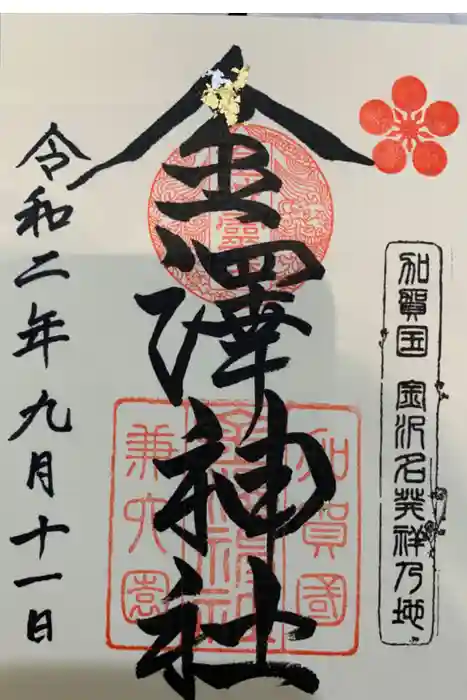 加賀国 金沢名発祥乃地
金澤神社
加賀國
金澤神社
兼六園
令和二年九月十一日